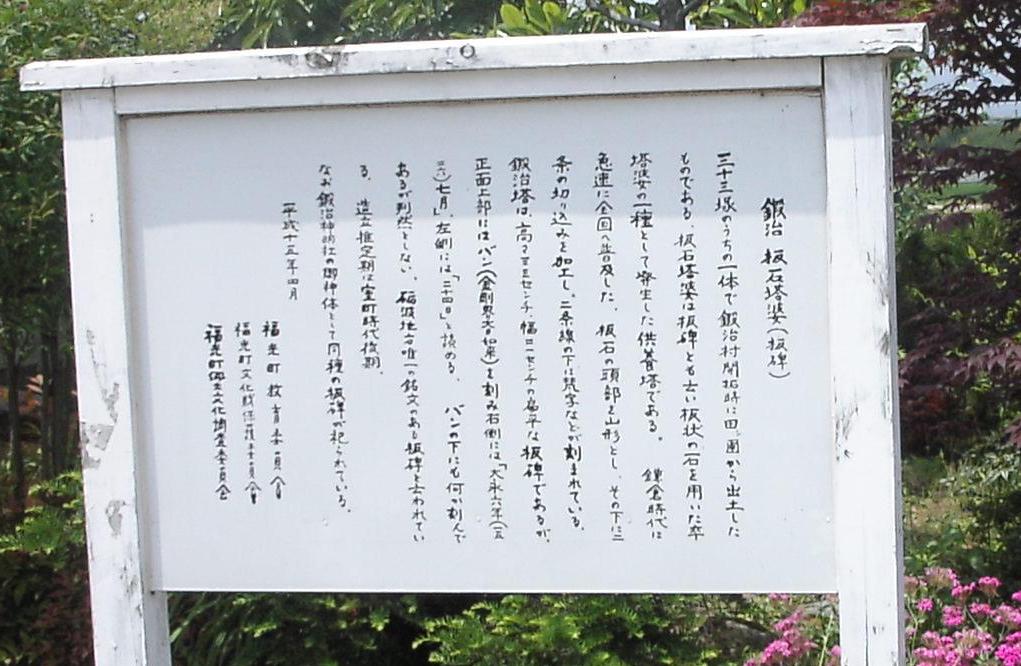 鍛冶 板石塔婆(板碑)
三十三塚のうちの一体で鍛冶村開拓時に田圃から出土した
ものである。板石塔婆は板碑とも云い板状の一石を用いた卒
塔婆の一種として発生した供養塔である。 鎌倉時代に
急速に全国へ普及した。 板石の頭部を山形とし、その下に二
条の切り込みを加工し、二条線の下に梵字などが刻まれている。
鍛冶塔は、高サ三三センチ、幅二二センチの扁平な板碑であるが、
正面上部にはバン(金剛界大日如来)を刻み右側には「大永六年(一五
二六)七月」、左側には「二十四日」と読める。 バンの下にも何か刻んで
あるが判然としない。砺波地方唯一の銘文のある板碑と云われてい
る。 造立推定期は室町時代後期。
なお鍛冶神明社の御神体として同種の板碑が祀られている。
平成十五年四月
福光町教育委員会
福光町文化財保護委員会
福光町郷土文化調査委員会